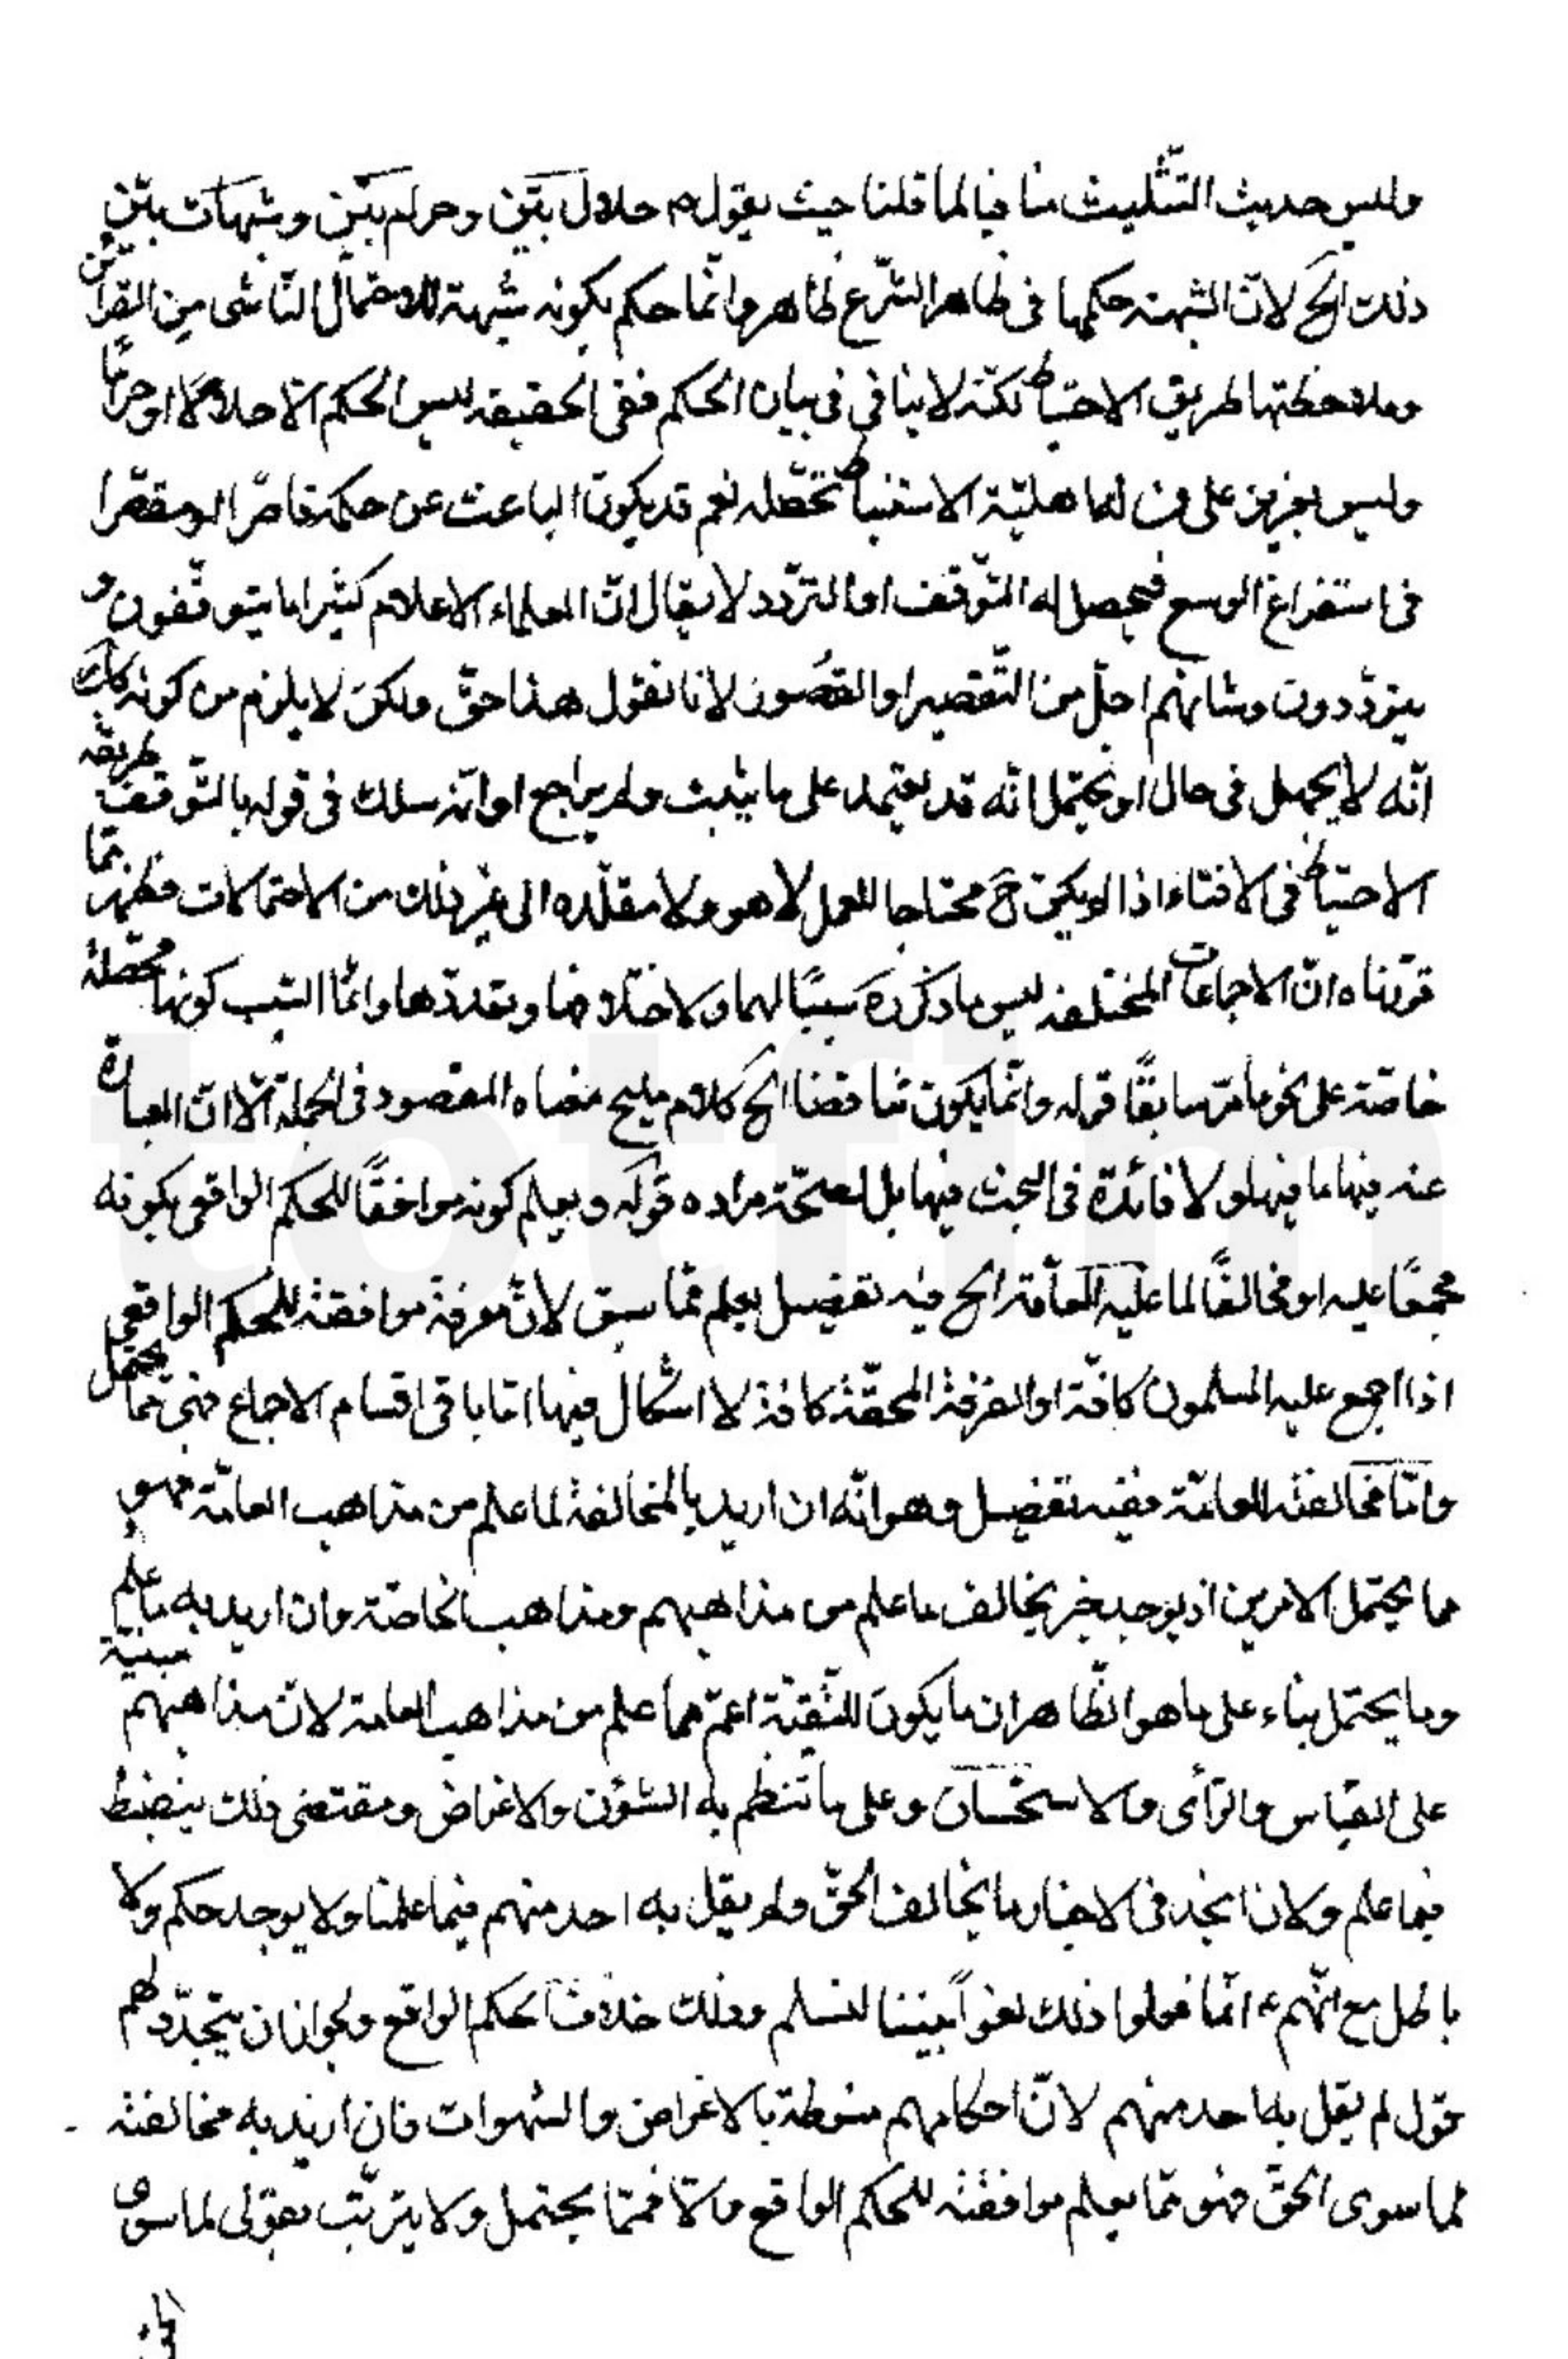 وليس حديث التّثليث منافيا لما قلنا حيث يقول ۴ حلال بيّن وحرام بيّن وشبهات بين
ذلك الخ لانّ الشبهة حكمها فى ظاهر الشّرع ظاهر وانّما حكم بكونه شبهة للاحتمال النّاشى من القرائن
وملاحظتها لطريق الاحتياط نكتة لا ينافي فى بيان الحكم ففى الحقيقة ليس الحكم الّا حلالا او حراما
وليس بعزيز على من له اهليّة الاستنباط تحصّله نعم قد يكون الباعث عن حكمة قاصرًا او مقصّرا
فى استفراغ الوسع فيحصل له التّوقف او التردّد لا يقال انّ العلماء الاعلام كثيرا ما يتوقّفون و
يتردّدون وشانهم اجلّ من التّقصير او القصور لانا نقول هذا حقّ ولكن لا يلزم من كونه كذلك
انّه لا يجهل فى حال او يحتمل انّه قد يعتمد على ما يثبت ولم يراجع او انّه سلك فى قوله بالتّوقف طريقه
الاحتياط فى الافتاء اذا لم يكن ح محتاجا للعمل لا هو ولا مقلّده الى غير ذلك من الاحتمالات فظهر ممّا
قرّرناه انّ الاجماعات المختلفة ليس ما ذكره سببًا لها ولا ختلافها وتعدّدها وانّما السّبب كونها محصّلة
خاصّة على نحو ما مرّ سابقًا قوله وانّما يكون تناقضا الخ كلام مليح معناه المقصود فى الجملة الّا انّ العبارة
عنه فيها ما فيها ولا فائدة فى البحث فيها بل لصحّة مراده قوله ويعلم كونه موافقًا للحكم الواقعى بكونه
مجمعًا عليه او مخالفًا لما عليه العامّة الخ فيه تفصيل يعلم ممّا سبق لانّ معرفة موافقته للحكم الواقعى
اذا اجمع عليه المسلمون كافّة او الفرقة المحقّة كافة لا اشكال فيها امّا باقى اقسام الاجماع فهى ممّا يحتمل
وامّا مخالفته للعامّة ففيه تفصيل وهو انّه ان اريد بالمخالفة لما علم من مذاهب العامّة فهو
مما يحتمل الامرين اذ يوجد خبر يخالف ما علم من مذاهبهم ومذاهب الخاصّة وان اريد به ما علم
وما يحتمل بناء على ما هو الظّاهر ان ما يكون للتّقيّة اعمّ مما علم من مذاهب العامة لانّ مذاهبهم مبنية
على القياس والرّأى والاستحسان وعلى ما تنظم به الشئون والاغراض ومقتضى ذلك ينضبط
فيما علم ولانا نجد فى الاخبار ما يخالف الحقّ ولم يقل به احد منهم فيما علمنا ولا يوجد حكم ولا
باطل مع انّهم ع انّما فعلوا ذلك لعزّ بيننا لنسلم وذلك خلاف الحكم الواقع ولجواز ان يتجدّد لهم
قول لم يقل به احد منهم لانّ احكامهم منوطة بالاغراض والشهوات فان اريد به مخالفته
لما سوى الحقّ فهو ممّا يعلم موافقته للحكم الواقع والّا فممّا يحتمل ولا يترتّب بقولى لما سوى